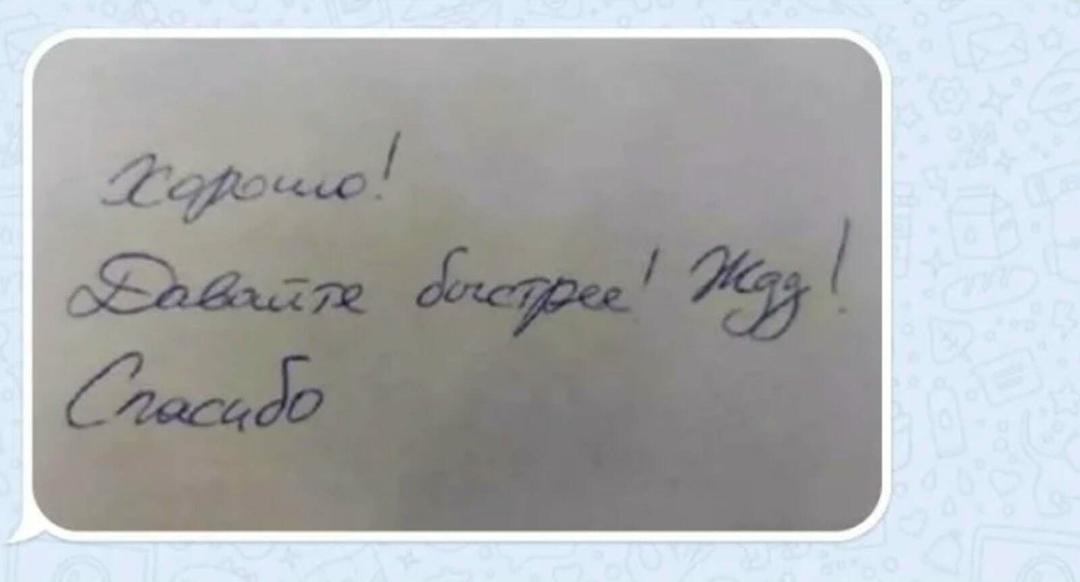 Хорошо!
Давайте быстрее! Жду!
Спасибо